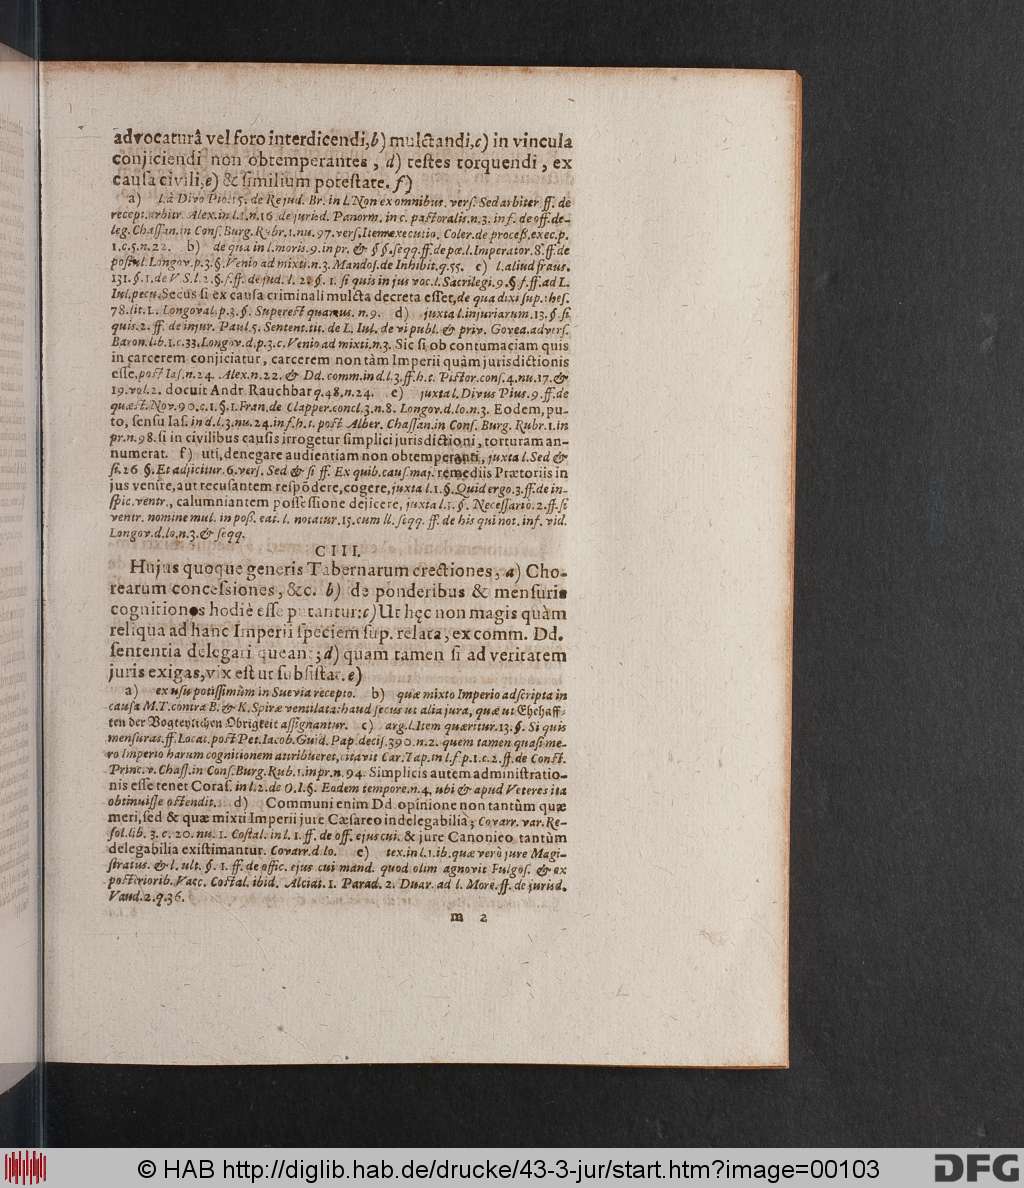 advocaturâ vel foro interdicendi,b) mulctandi,c) in vincula
conjiciendi non obtemperantes, d) testes torquendi, ex
causa civili,e) & similium potestate. f)
a) l.à Divo Pio.15. de Rejud. Br. in l. Non ex omnibus. vers. Sed arbiter ff. de
recept. arbitr. Alex. in l.1.n.16 de jurisd. Panorm. in c. pastoralis.n.3. inf. de off. de-
leg. Chassan. in Cons. Burg. Rubr.1.nu.97. vers. Item executio. Coler. de proceß. exec. p.
1.c.5.n.22. b) de qua in l. moris.9. in pr. & §§. seqq. ff. de pæ. l. Imperator. 8. ff. de
postul. Longov. p.3.§. Venio ad mixti.n.3. Mandos. de Inhibit. q.55. c) l. aliud fraus.
131. §.1. de V.S. l.2.§. f. ff. de jud. l. 2. §. 1. si quis in jus voc. l. Sacrilegi.9.§. f. ff. ad L.
Iul. pecu. Secus si ex causa criminali mulcta decreta esset, de qua dixi sup. thes.
78. lit. L. Longoval. p.3. §. Superest quartus. n.9. d) juxta l. injuriarum.13.§. si
quis.2. ff. de injur. Paul.5. Sentent. tit. de L. Iul. de vi publ. & priv. Govea. advers.
Baron. lib.1.c.33. Longov. d.p.3.c. Venio ad mixti.n.3. Sic si ob contumaciam quis
in carcerem conjiciatur, carcerem non tàm Imperii quàm jurisdictionis
esse, post Ias. n.24. Alex. n.22. & Dd. comm. in d.l.3. ff. h.t. Pistor. cons. 4. nu.17. &
19. vol.2. docuit Andr. Rauchbar q.48. n.24. e) juxta l. Divus Pius.9. ff. de
quæst. Nov.90.c.1.§.1. Fran. de Clapper. concl.3.n.8. Longov. d. lo. n.3. Eodem, pu-
to, sensu Ias. in d.l.3. nu.24. inf. h.t. post Alber. Chassan. in Cons. Burg. Rubr.1. in
pr. n.98. si in civilibus causis irrogetur simplici jurisdictioni, torturam an-
numerat. f) uti, denegare audientiam non obtemperanti, juxta l. Sed &
si.26 §. Et adjicitur.6. vers. Sed & si ff. Ex quib. caus. maj. remediis Prætoriis in
jus venire, aut recusantem respõdere, cogere, juxta l.1.§. Quid ergo.3. ff. de in-
spic. ventr., calumniantem possessione dejicere, juxta l.1.§. Necessario.2. ff. si
ventr. nomine mul. in poß. eat. l. notatur.15. cum ll. seqq. ff. de his qui not. inf. vid.
Longov. d. lo. n.3. & seqq.
CIII.
Hujus quoque generis Tabernarum erectiones, a) Cho-
rearum concessiones, &c. b) de ponderibus & mensuris
cognitiones hodiè esse putantur:c) Ut hęc non magis quàm
reliqua ad hanc Imperii speciem sup. relata, ex comm. Dd.
sententia delegari queant; d) quam tamen si ad veritatem
juris exigas, vix est ut subsistat. e)
a) ex usu potissimùm in Suevia recepto. b) quæ mixto Imperio adscripta in
causa M.T. contra B. & K. Spiræ ventilata: haud secus ut alia jura, quæ ut Ehehaff-
ten der Vogteylichen Obrigkeit assignantur. c) arg. l. Item quæritur.13.§. Si quis
mensuras. ff. Locat. post Pet. Iacob. Guid. Pap. decis. 390. n.2. quem tamen quasi me-
ro Imperio harum cognitionem attribueret, citavit Car. Tap. in l. f. p.1.c.2. ff. de Const.
Princ. v. Chass. in Cons. Burg. Rub.1. in pr. n. 94. Simplicis autem administratio-
nis esse tenet Coras. in l.2. de O.I.§. Eodem tempore.n.4. ubi & apud Veteres ita
obtinuisse ostendit. d) Communi enim Dd. opinione non tantùm quæ
meri, sed & quæ mixti Imperii jure Cæsareo indelegabilia; Covarr. var. Re-
sol. lib. 3. c. 20. nu. 1. Costal. in l. 1. ff. de off. ejus cui. & jure Canonico tantùm
delegabilia existimantur. Covarr. d. lo. e) tex. in l.1. ib. quæ verò jure Magi-
stratus. & l. ult. §. 1. ff. de offic. ejus cui mand. quod olim agnovit Fulgos. & ex
posteriorib. Vacc. Costal. ibid. Alciat. 1. Parad. 2. Duar. ad l. More. ff. de jurisd.
Vaud.2.q.36.
m 2
© HAB http://diglib.hab.de/drucke/43-3-jur/start.htm?image=00103
DFG